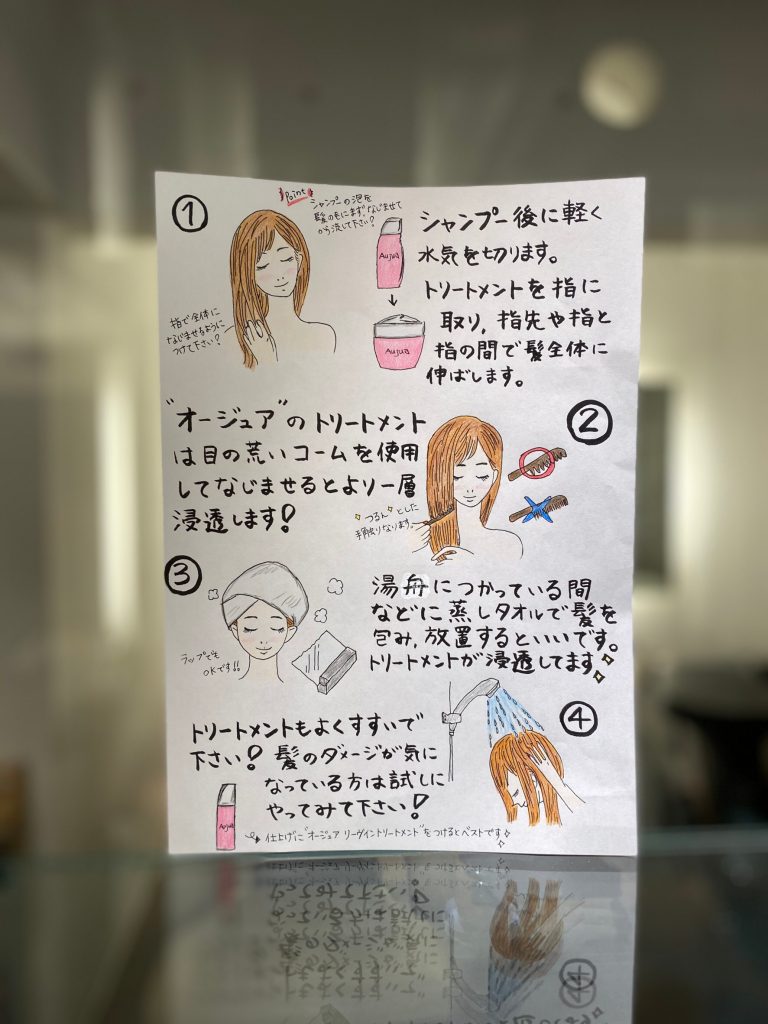 ①
Point
シャンプーの泡を
髪の毛にまず、なじませて
から流して下さい?
シャンプー後に軽く
水気を切ります。
Aujua
トリートメントを指に
取り,指先や指と
指の間で髪全体に
伸ばします。
Aujua
指で全体に
なじませるように
つけて下さい?
②
"オージュア"のトリートメント
は目の荒いコームを使用
してなじませるとより一層
浸透します!
つるんとした
手触りなります。
③
湯舟につかっている間
などに蒸しタオルで髪を
包み,放置するといいです。
トリートメントが浸透してます。
ラップでも
OKです!!
④
トリートメントもよくすすいで
下さい! 髪のダメージが気に
なっている方は試しに
やってみて下さい!
Aujua
仕上げに"オージュア リーヴイントリートメント"をつけるとベストです